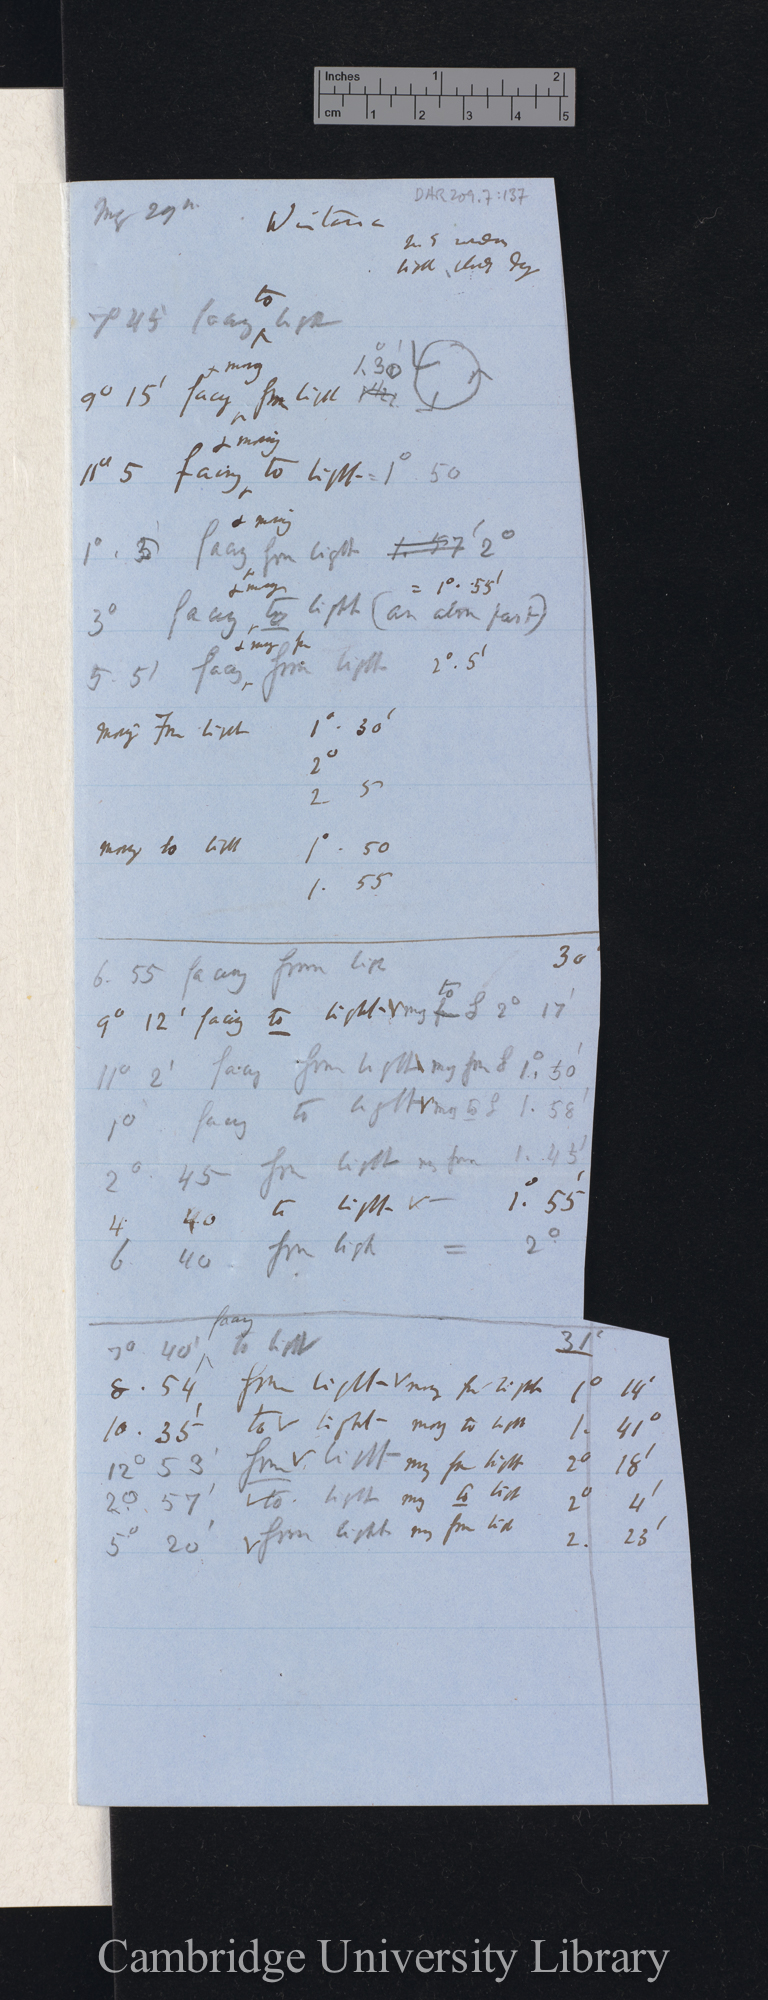 Inches 1 2
cm 1 2 3 4 5
DAR 209.7:137
29th
Wistaria
45 facing to light
1.° 30'
9° 15' facing & moving from light
11° 5 facing & moving to light = 1° 50
1°. 5' facing & moving from light 2°
= 1°. 55'
3° facing & moving to light (as above just)
5. 5' facing & moving from light 2°. 5'
moving from light 1°. 30'
2°
2 5
moving to light 1°. 50
1. 55
6. 55 facing from light 30
9° 12' facing to light mg to L 2° 17'
11° 2' facing from light mg from L 1°. 50'
1° facing to light mg to L 1. 58'
2°. 45 from light mg from 1. 45'
4. 40 to light 1°. 55'
6 40 from light = 2°
7° 40' facing to light 31'
8. 54' from light moving from light 1° 14'
10. 35' to light moving to light 1. 41°
12° 53' from light mg from light 2° 18'
2°. 57' to light mg to light 2° 4'
5° 20' from light mg from light 2. 23'
Cambridge University Library